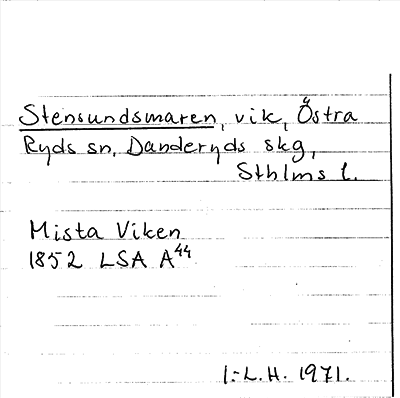 Stensundsmaren, vik, Östra
Ryds sn, Danderyds skg,
Sthlms l.
Mista Viken
1852 LSA A44
I.-L.H. 1971.